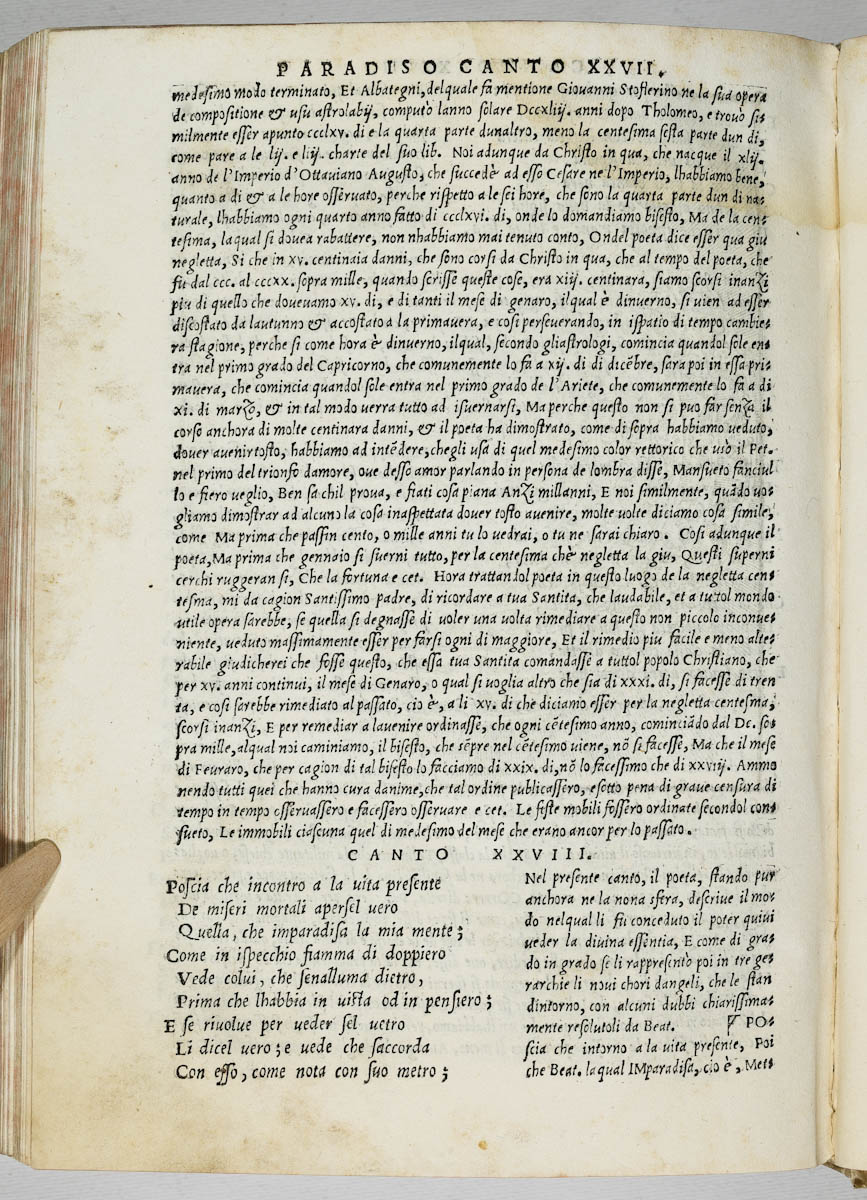 PARADISO CANTO XXVII.
medesimo modo terminato, Et Albategni, delquale fa mentione Giovanni Stoflerino ne la sua opera
de compositione & usu astrolabij, computò lanno solare Dccxliij. anni dopo Tholomeo, e trovò si-
milmente esser apunto ccclxv. di e la quarta parte dunaltro, meno la centesima sesta parte dun di,
come pare a le lij. e liij. charte del suo lib. Noi adunque da Christo in qua, che nacque il xlij.
anno de l'Imperio d'Ottaviano Augusto, che succedè ad esso Cesare ne l'Imperio, lhabbiamo bene,
quanto a di & a le hore osservato, perche rispetto a le sei hore, che sono la quarta parte dun di na-
turale, lhabbiamo ogni quarto anno fatto di ccclxvi. di, onde lo domandiamo bisesto, Ma de la cen-
tesima, laqual si dovea rabattere, non nhabbiamo mai tenuto conto, Ondel poeta dice esser qua giu
negletta, Si che in xv. centinaia danni, che sono corsi da Christo in qua, che al tempo del poeta, che
fù dal ccc. al cccxx. sopra mille, quando scrisse queste cose, era xiij. centinara, siamo scorsi inanZi
piu di quello che dovevamo xv. di, e di tanti il mese di genaro, ilqual è dinverno, si vien ad esser
discostato da lautunno & accostato a la primavera, e cosi perseverando, in spatio di tempo cambie-
ra stagione, perche si come hora è dinverno, ilqual, secondo gliastrologi, comincia quandol sole en-
tra nel primo grado del Capricorno, che comunemente lo fa a xij. di di dicẽbre, sara poi in essa pri-
mavera, che comincia quandol sole entra nel primo grado de l'Ariete, che comunemente lo fa a di
xi. di marZo, & in tal modo verra tutto ad isvernarsi, Ma perche questo non si puo far senZa il
corso anchora di molte centinara danni, & il poeta ha dimostrato, come di sopra habbiamo veduto,
dover avenir tosto, habbiamo ad intẽdere, chegli usa di quel medesimo color rettorico che usò il Pet.
nel primo del trionfo damore, ove desso amor parlando in persona de lombra disse, Mansueto fanciul
lo e fiero veglio, Ben sa chil prova, e fiati cosa piana AnZi millanni, E noi similmente, quãdo vo-
gliamo dimostrar ad alcuno la cosa inaspettata dover tosto avenire, molte volte diciamo cosa simile,
come Ma prima che passin cento, o mille anni tu lo vedrai, o tu ne sarai chiaro. Cosi adunque il
poeta, Ma prima che gennaio si sverni tutto, per la centesima ch'è negletta la giu, Questi superni
cerchi ruggeran si, Che la fortuna e cet. Hora trattandol poeta in questo luogo de la negletta cen-
tesma, mi da cagion Santissimo padre, di ricordare a tua Santita, che laudabile, et a tuttol mondo
utile opera sarebbe, se quella si degnasse di voler una volta rimediare a questo non piccolo inconve-
niente, veduto massimamente esser per farsi ogni di maggiore, Et il rimedio piu facile e meno alte-
rabile giudicherei che fosse questo, che essa tua Santita comandasse a tuttol popolo Christiano, che
per xv. anni continui, il mese di Genaro, o qual si voglia altro che sia di xxxi. di, si facesse di tren
ta, e cosi sarebbe rimediato al passato, cio è, a li xv. di che diciamo esser per la negletta centesma,
scorsi inanZi, E per remediar a lavenire ordinasse, che ogni cẽtesimo anno, cominciãdo dal Dc. so-
pra mille, alqual noi caminiamo, il bisesto, che sẽpre nel cẽtesimo viene, nõ si facesse, Ma che il mese
di Fevraro, che per cagion di tal bisesto lo facciamo di xxix. di, nõ lo facessimo che di xxviij. Ammo
nendo tutti quei che hanno cura danime, che tal ordine publicassero, e sotto pena di grave censura di
tempo in tempo osservassero e facessero osservare e cet. Le feste mobili fossero ordinate secondol con-
sueto, Le immobili ciascuna quel di medesimo del mese che erano ancor per lo passato.
CANTO XXVIII.
Poscia che incontro a la vita presente
De miseri mortali apersel vero
Quella, che imparadisa la mia mente;
Come in ispecchio fiamma di doppiero
Vede colui, che senalluma dietro,
Prima che lhabbia in vista od in pensiero;
E se rivolve per veder sel vetro
Li dicel vero; e vede che saccorda
Con esso, come nota con suo metro;
Nel presente canto, il poeta, stando pur
anchora ne la nona sfera, descrive il mo-
do nelqual li fù conceduto il poter quivi
veder la divina essentia, E come di gra-
do in grado se li rappresentò poi in tre ge-
rarchie li novi chori dangeli, che le stan
dintorno, con alcuni dubbi chiarissima-
mente resolutoli da Beat. PO-
scia che intorno a la vita presente, Poi
che Beat. laqual IMparadisa, cio è, Met-